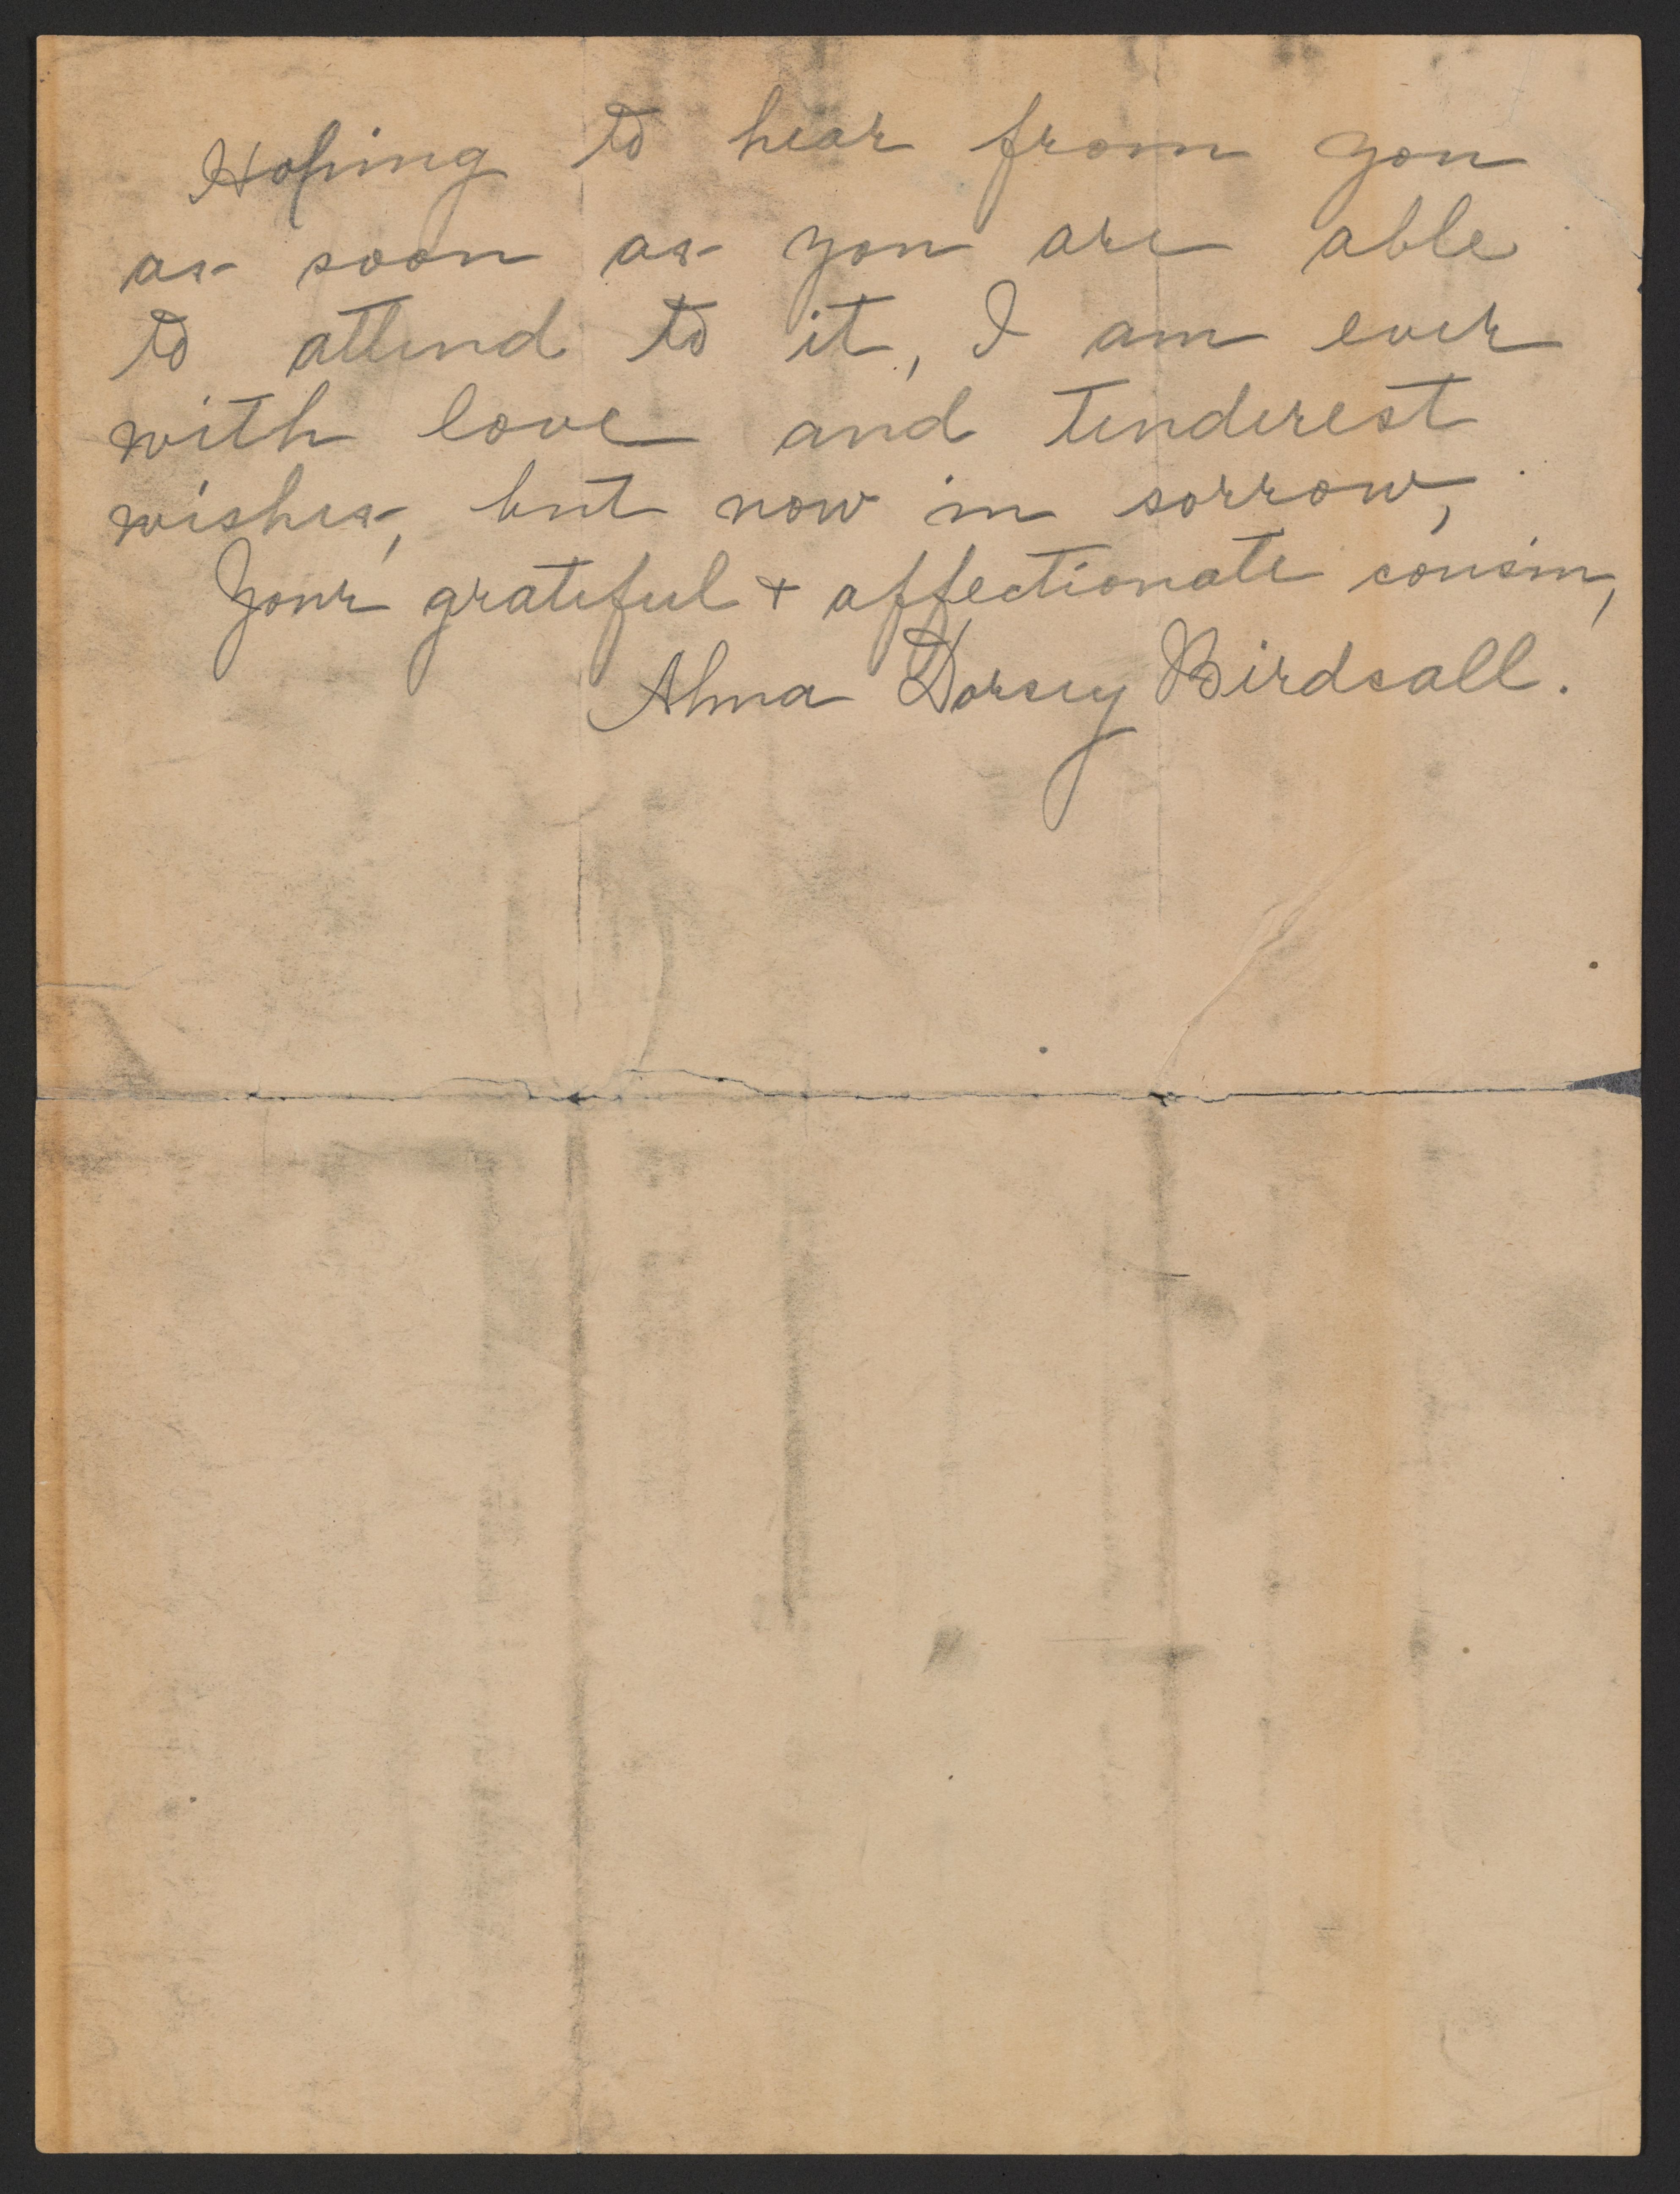 Hoping to hear from you
as soon as you are able
to attend to it, I am ever
with love and tenderest
wishes, but now in sorrow,
Your grateful + affectionate cousin,
Alma Dorsey Birdsall.